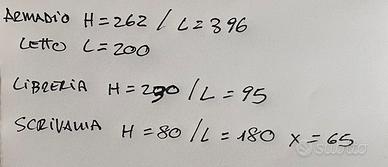 ARMADIO H=262 / L=396
LETTO L=200
LIBRERIA H=290 / L=95
SCRIVANIA H=80 / L=180 X=65
subito